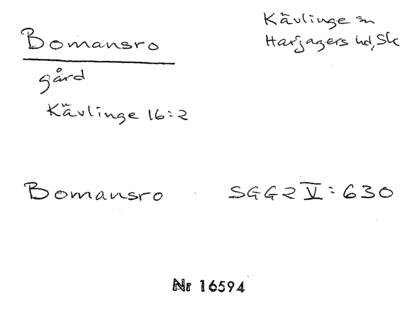 Bomansro
Kävlinge sn
Harjagers hd, Sk
gård
Kävlinge 16:2
Bomansro SGG2 V: 630
Nr 16594